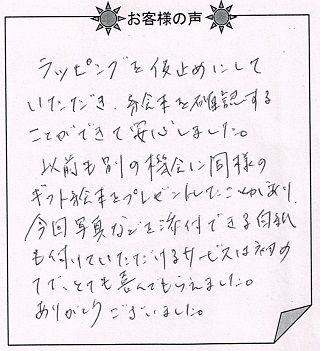 お客様の声
ラッピングを仮止めにして
いただき、絵本を確認する
ことができて安心しました。
以前も別の機会に同様の
ギフト絵本をプレゼントしたことがあり
今回写真などを添付できる台紙
も付けていただけるサービスは初め
てで、とても喜んでもらえました。
ありがとうございました。